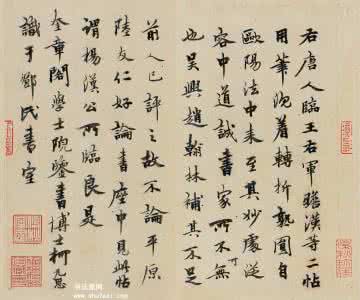 右唐人臨王右軍瞻漢等二帖
用筆沉着轉折熟圓自
歐陽法中來至其妙處從
容中道誠書家所不可無
也吳興趙翰林補其不足
前人已評之故不論平原
陸友仁好論書座中見此帖
謂楊漢公所臨良是
奎章閣學士院鑒書博士柯九思
識于鄧氏書室